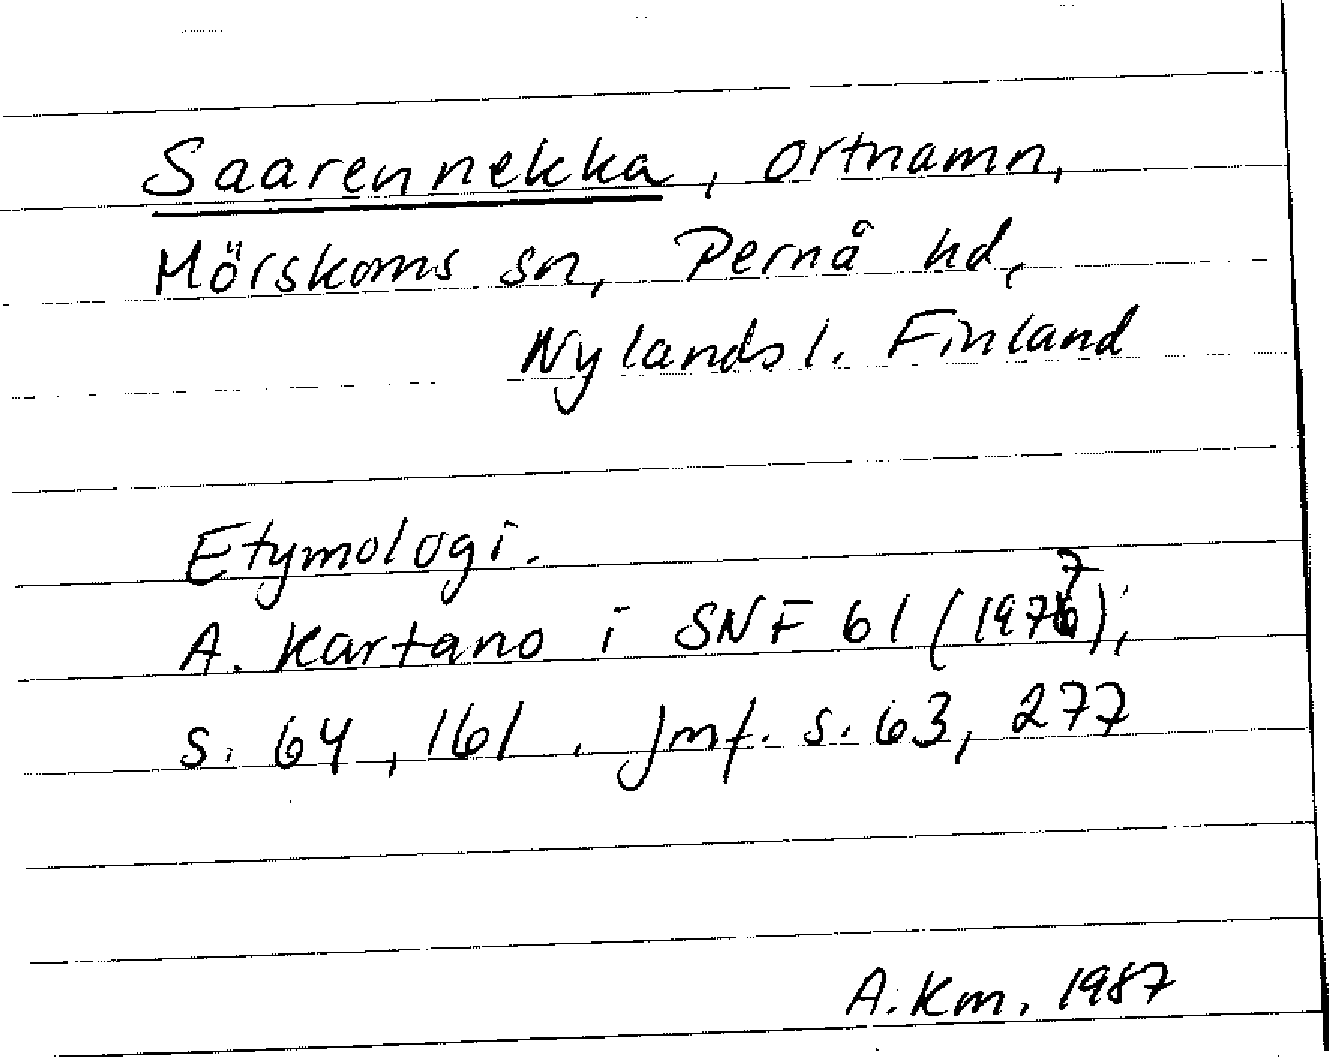 Saarennekka, ortnamn,
Mörskoms sn, Pernå hd,
Nylands l. Finland
Etymologi.
A. Kartano i SNF 61 (1977);
s. 64, 161. Jmf. s. 63, 277
A. Km. 1987